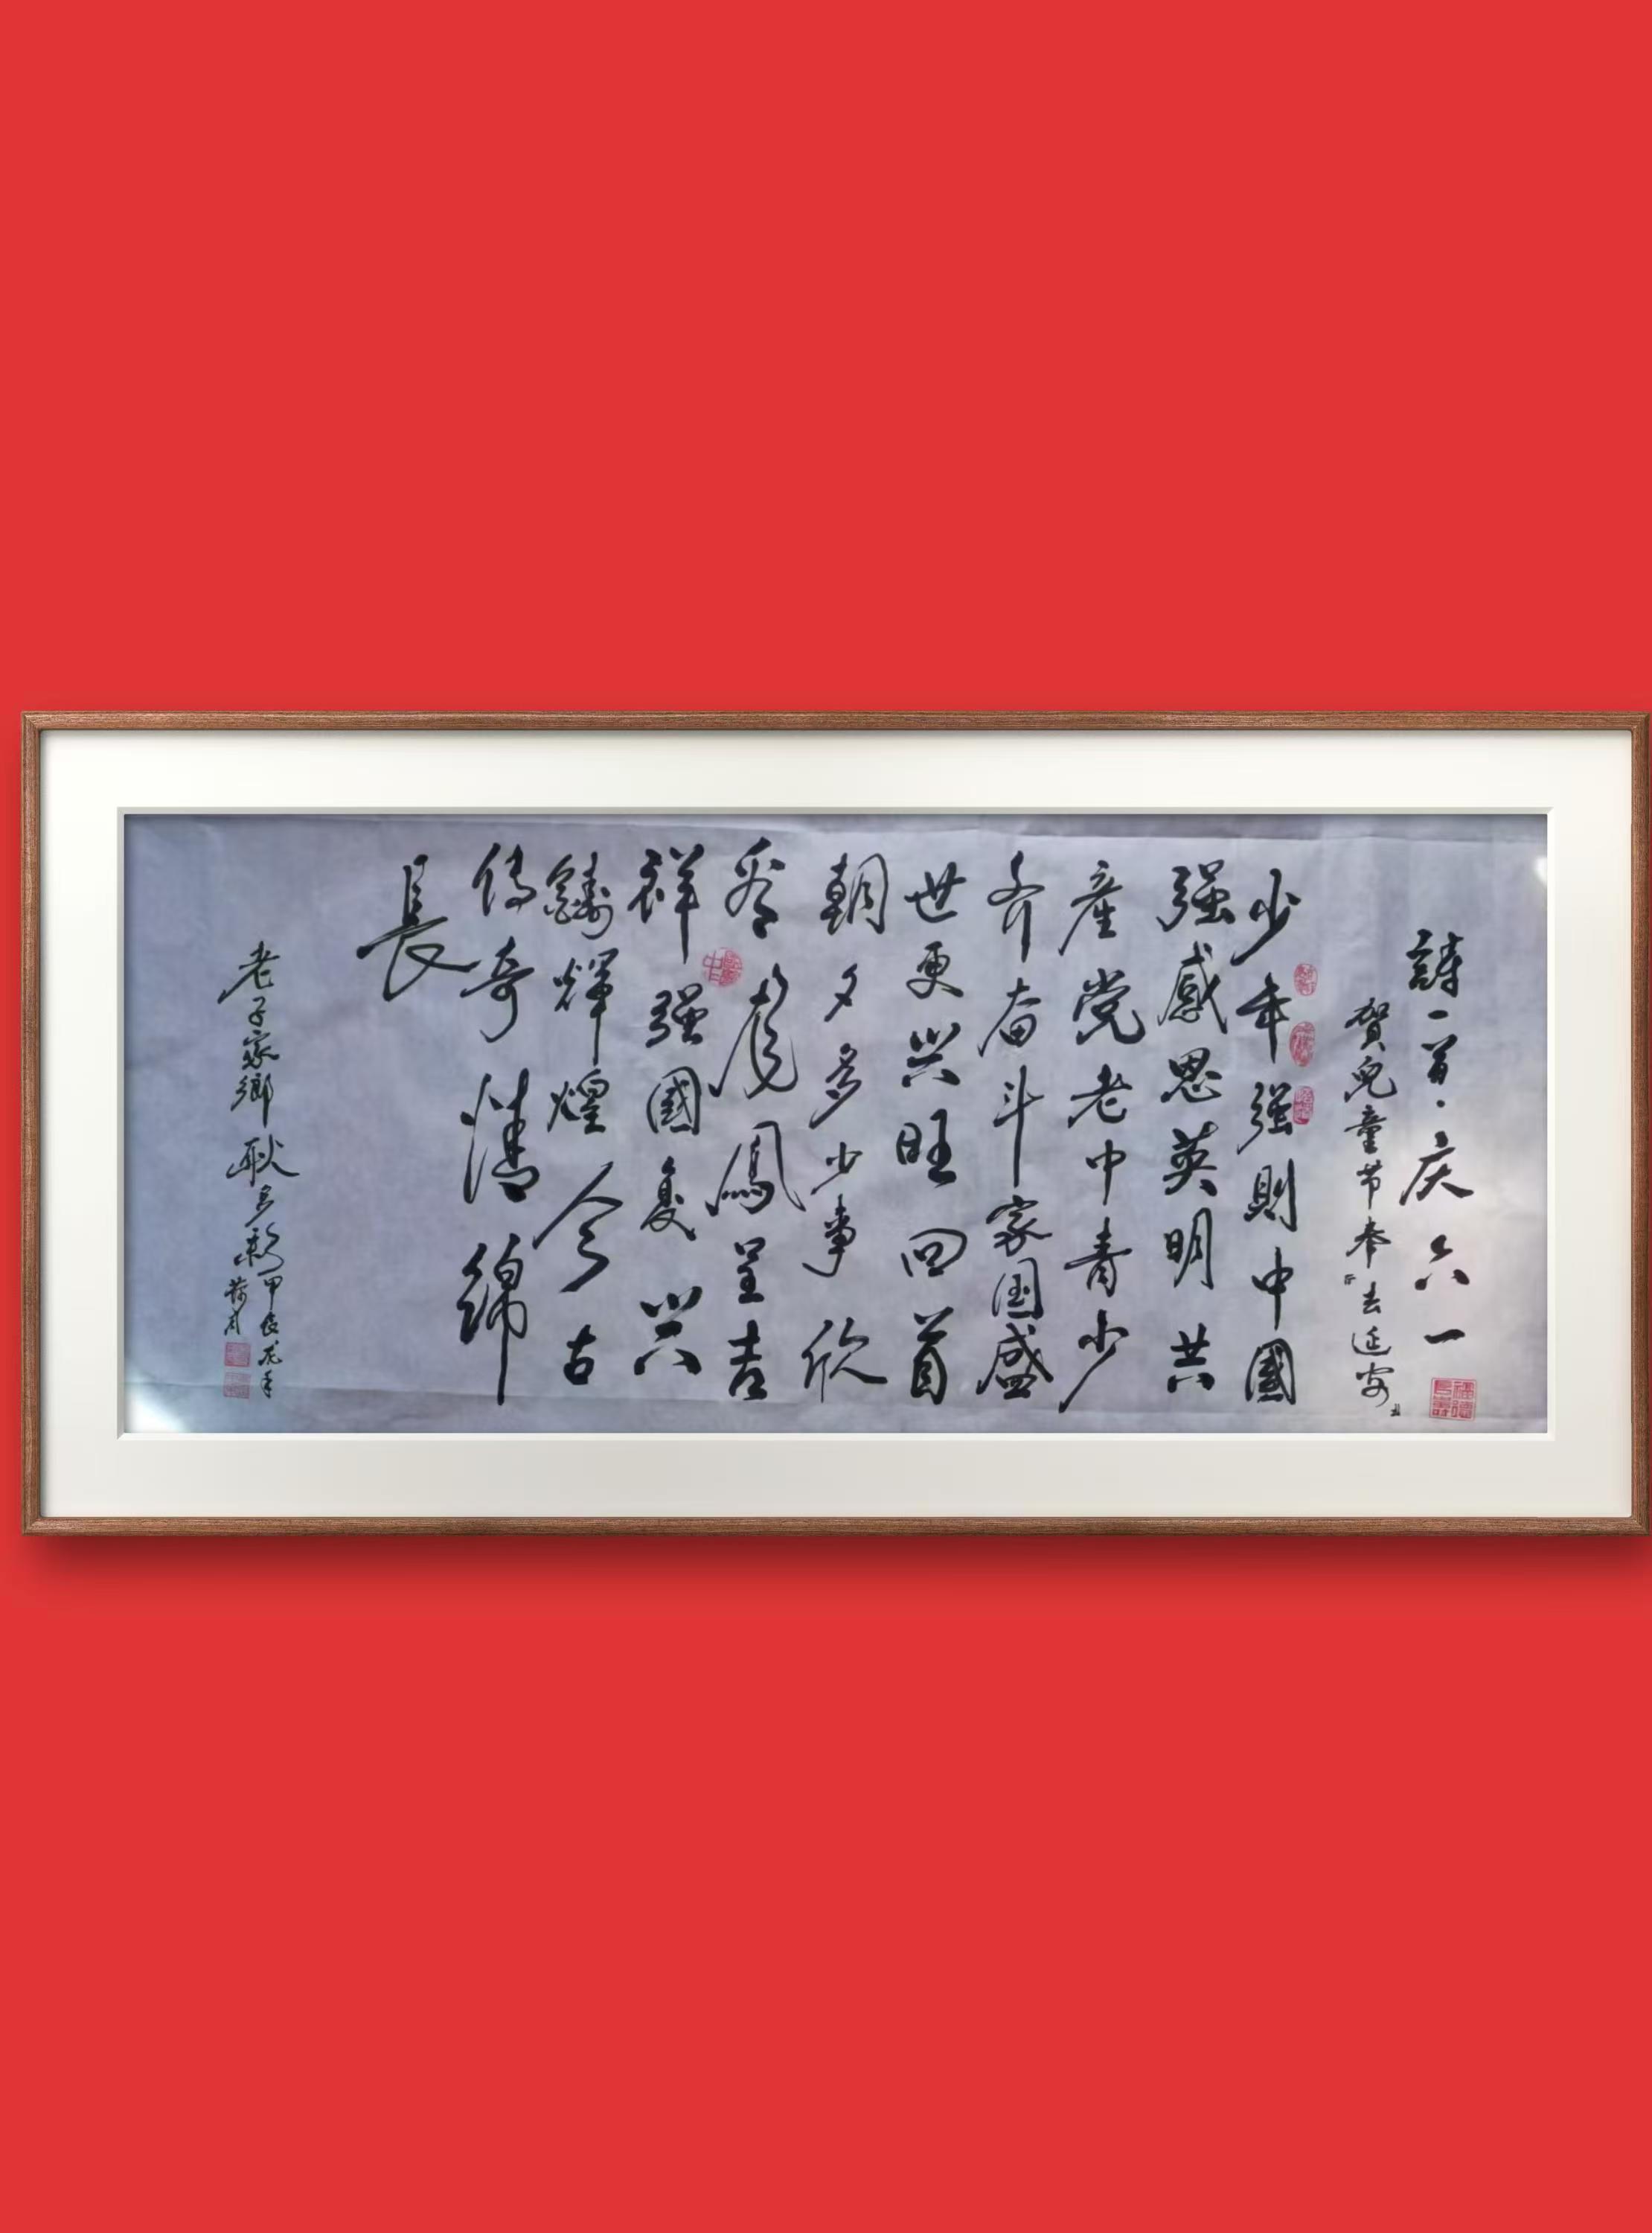 詩一首·庆六一
賀兒童节奉“去延安”
少年强則中國
强感恩英明共
産党老中青少
齐奋斗家国盛
世更兴旺回首
朝夕多少事欣
看龍鳳呈吉
祥强國复兴
鑄輝煌今古
传奇情绵
長
老子家鄉耿
甲辰龙年
荷月